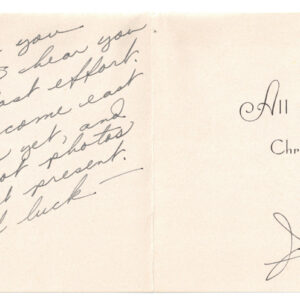 you
hear you
last effort.
come east
yet, and
photos
present.
luck—
All
Chr